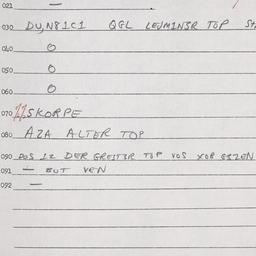 021 —
030 DU,N81C1 QGL LEJMINSR TOP
040 O
050 O
060 O
070 11SKORPE
080 AZA ALTER TOP
090 DOS 12 DER GREITER TOP VOS XOR
091 — EUT VEN
092 —